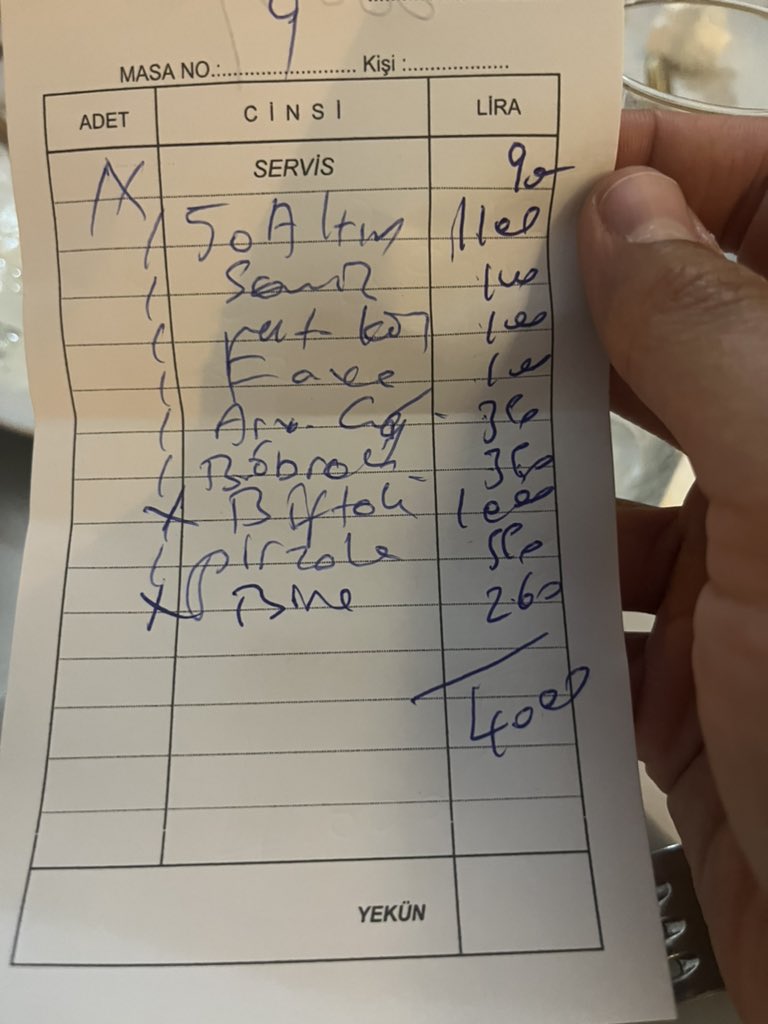 9
MASA NO.:........................ Kişi :...................
ADET CİNSİ LİRA
SERVİS 90
50 Altın 1100
100
100
Fava 100
Arn. Ciğ 350
Böbrek 350
X Biftek 1000
pirzola 550
X 260
4000
YEKÜN